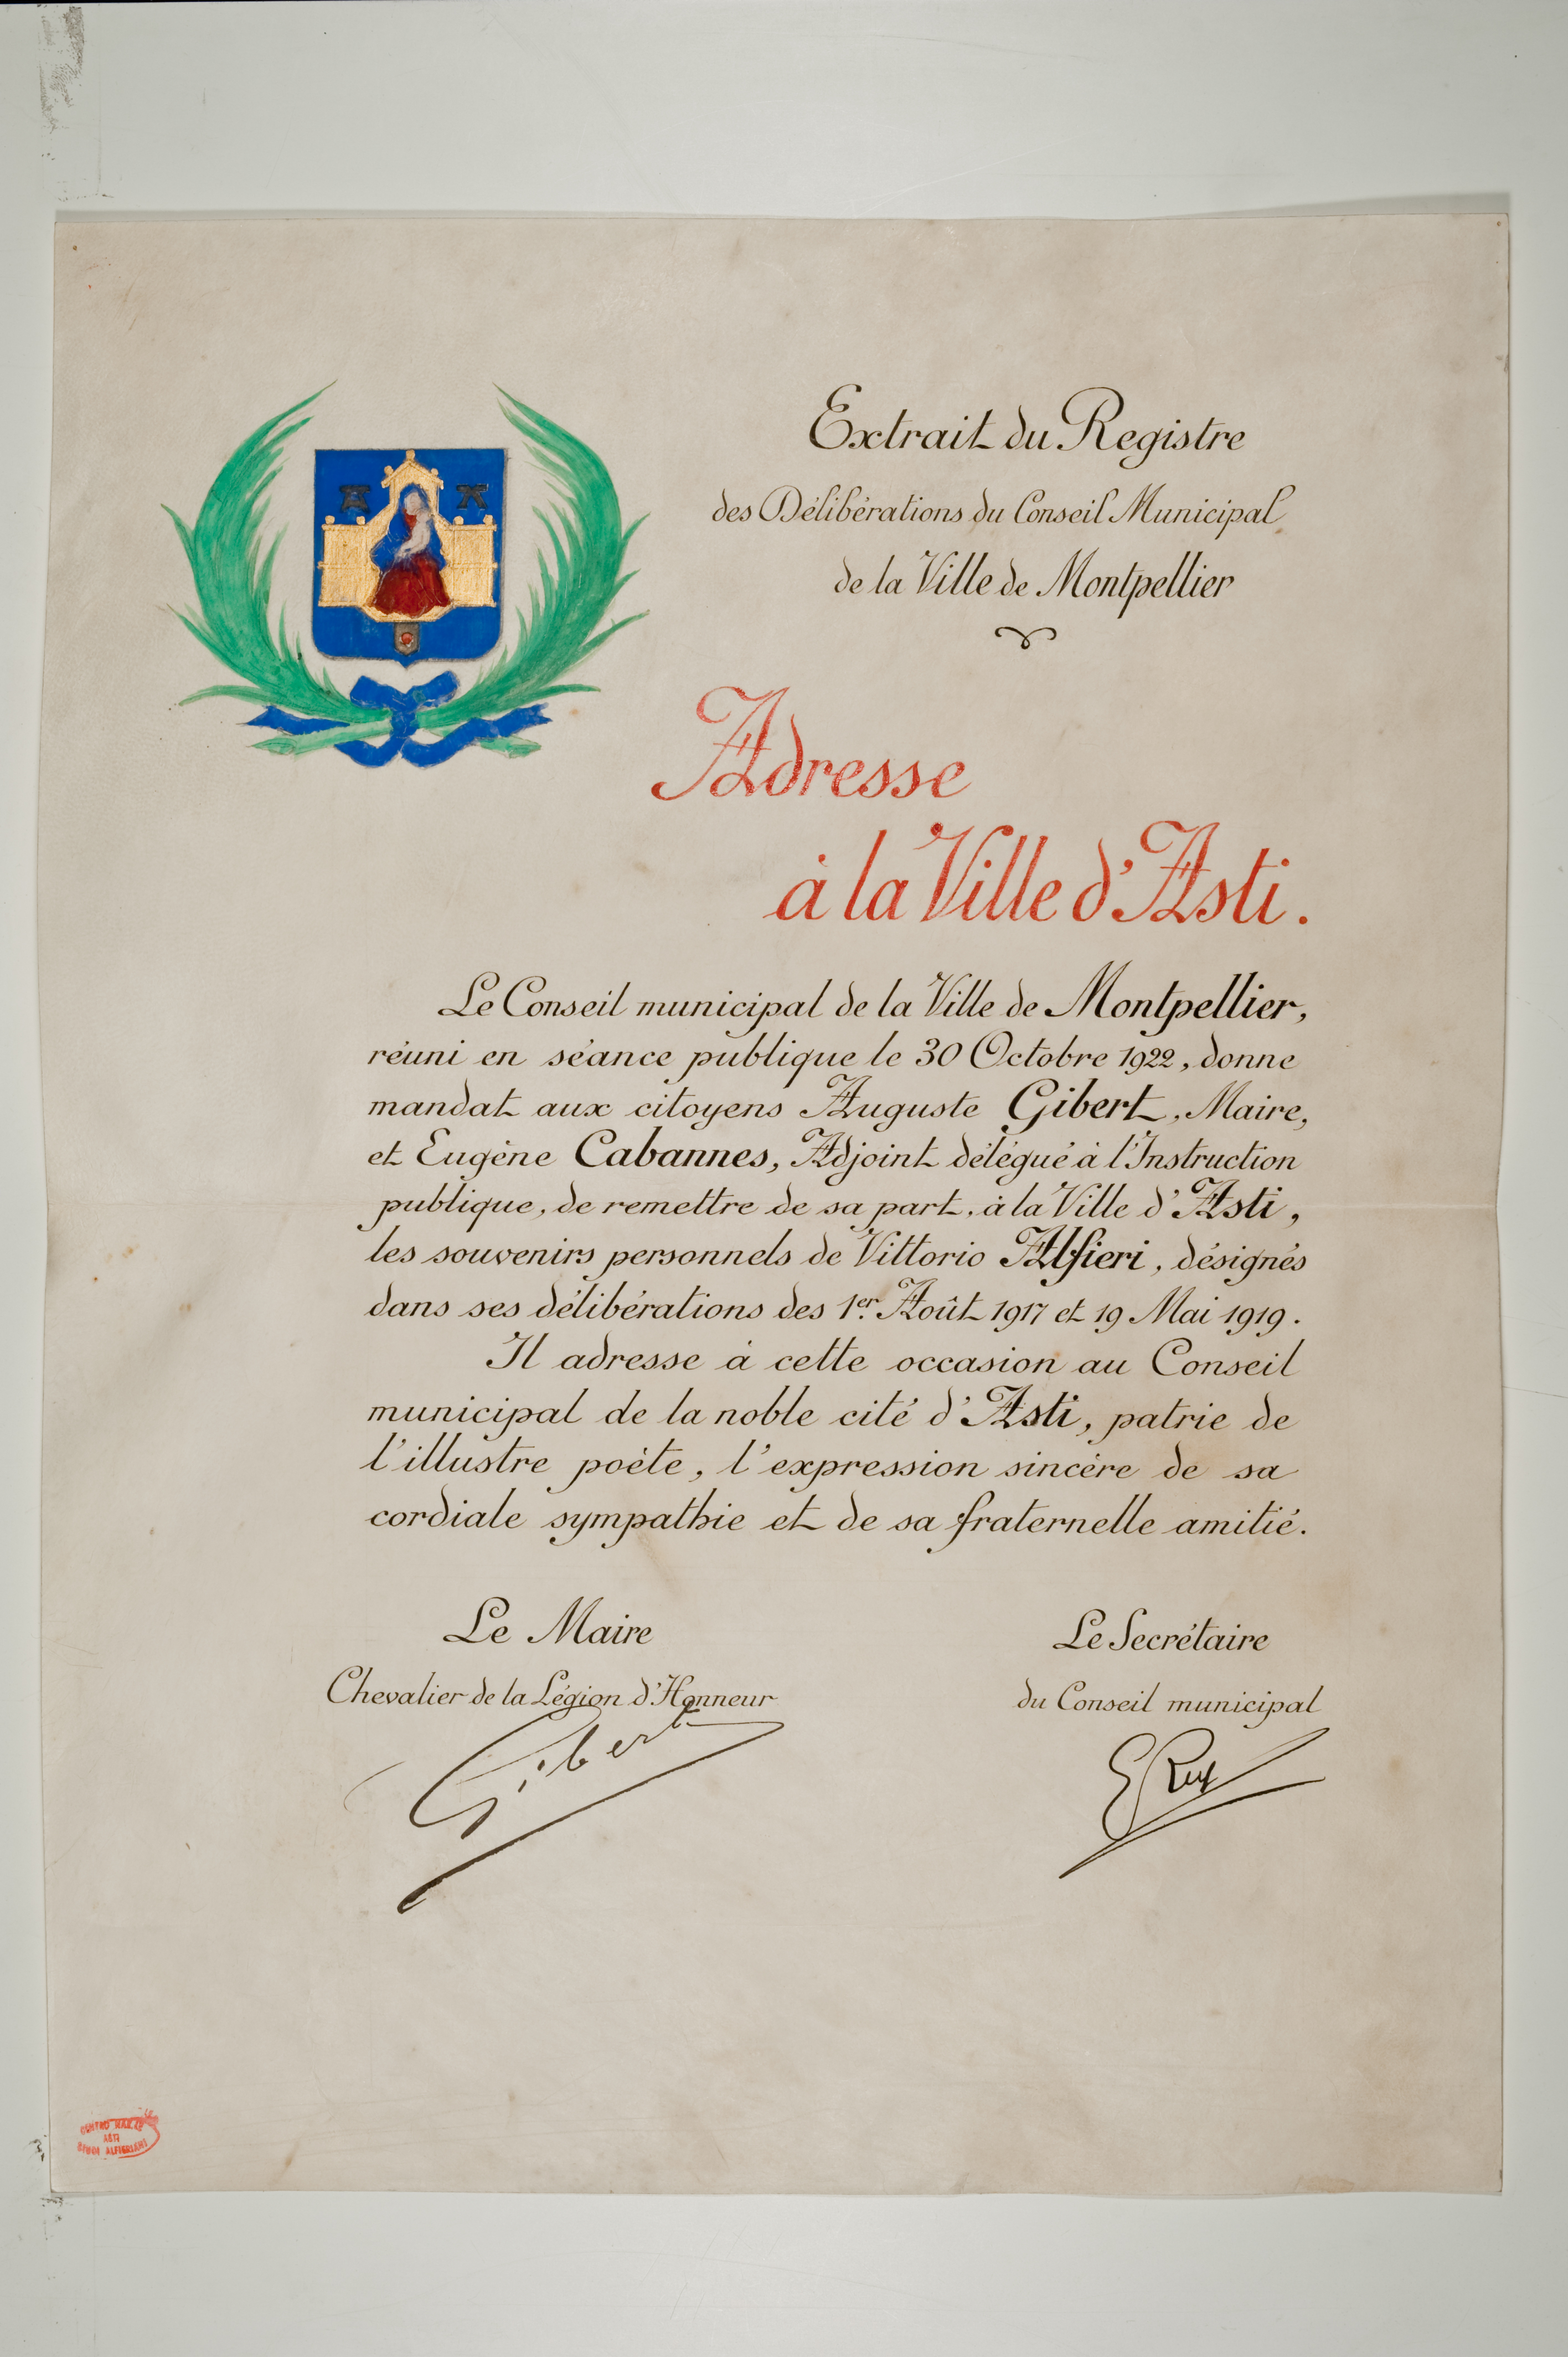 Extrait du Registre
des Délibérations du Conseil Municipal
de la Ville de Montpellier
Adresse
à la Ville d'Asti.
Le Conseil municipal de la Ville de Montpellier,
réuni en séance publique le 30 Octobre 1922, donne
mandat aux citoyens Auguste Gibert, Maire,
et Eugène Cabannes, Adjoint délégué à l'Instruction
publique, de remettre de sa part, à la Ville d'Asti,
les souvenirs personnels de Vittorio Alfieri, désignés
dans ses délibérations des 1er Août 1917 et 19 Mai 1919.
Il adresse à cette occasion au Conseil
municipal de la noble cité d'Asti, patrie de
l'illustre poète, l'expression sincère de sa
cordiale sympathie et de sa fraternelle amitié.
Le Maire
Chevalier de la Légion d'Honneur
Gibert
Le Secrétaire
du Conseil municipal
ASTI